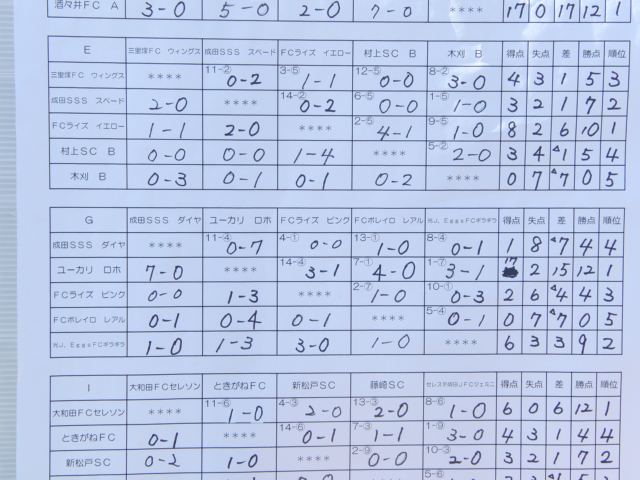 酒々井FC A 3-0 5-0 2-0 7-0 17 0 17 12 1
E 三里塚FC ウィングス 成田SSS スペード FCライズ イエロー 村上SC B 木刈 B 得点 失点 差 勝点 順位
三里塚FC ウィングス **** 11-② 0-2 3-⑤ 1-1 12-⑤ 0-0 8-② 3-0 4 3 1 5 3
成田SSS スペード 2-0 **** 14-② 0-2 6-⑤ 0-0 1-⑤ 1-0 3 2 1 7 2
FCライズ イエロー 1-1 2-0 **** 2-⑤ 4-1 9-⑤ 1-0 8 2 6 10 1
村上SC B 0-0 0-0 1-4 **** 5-② 2-0 3 4 △1 5 4
木刈 B 0-3 0-1 0-1 0-2 **** 0 7 △7 0 5
G 成田SSS ダイヤ ユーカリ ロホ FCライズ ピンク FCボレイロ レアル 光J.EggsFCギラギラ 得点 失点 差 勝点 順位
成田SSS ダイヤ **** 11-④ 0-7 4-① 0-0 13-① 1-0 8-④ 0-1 1 8 △7 4 4
ユーカリ ロホ 7-0 **** 14-④ 3-1 7-① 4-0 1-⑦ 3-1 17 2 15 12 1
FCライズ ピンク 0-0 1-3 **** 2-⑦ 1-0 10-① 0-3 2 6 △4 4 3
FCボレイロ レアル 0-1 0-4 0-1 **** 5-④ 0-1 0 7 △7 0 5
光J.EggsFCギラギラ 1-0 1-3 3-0 1-0 **** 6 3 3 9 2
I 大和田FCセレソン ときがねFC 新松戸SC 藤崎SC 得点 失点 差 勝点 順位
大和田FCセレソン **** 11-⑥ 1-0 4-③ 2-0 13-③ 2-0 8-⑥ 1-0 6 0 6 12 1
ときがねFC 0-1 **** 14-⑥ 0-1 7-③ 1-1 1-⑨ 3-0 4 3 1 4 4
新松戸SC 0-2 1-0 **** 2-⑨ 0-0 10-③ 2-0 3 2 1 7 2
5-⑥